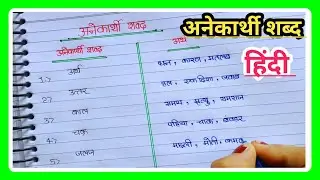 अनेकार्थी शब्द
हिंदी
अनेकार्थी शब्द
अनेकार्थी शब्द अर्थ
1) अर्थ धन, कारण, मतलब
2) उत्तर हल, दिशा, जवाब
3) काल समय, मृत्यु, यमराज
4) चक्र पहिया, चाक, चक्कर
5) जलज मछली, मोती, कमल